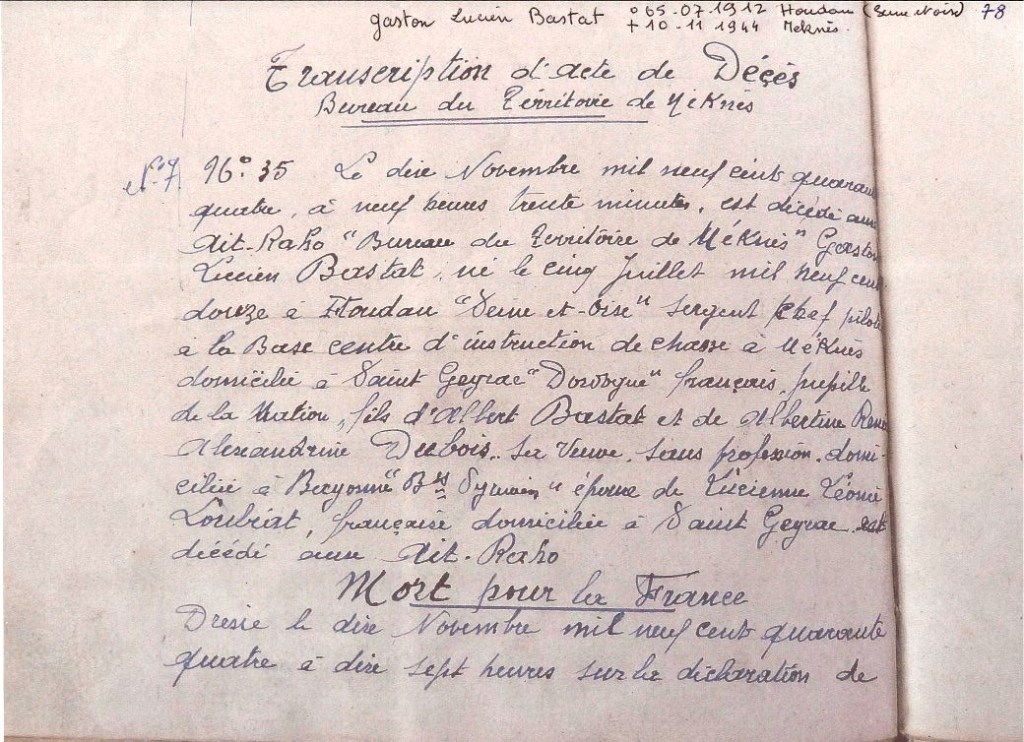 gaston Lucien Bastat ° 05-07-1912 Houdan (Seine et oise) 78
+ 10-11-1944 Meknès.
Transcription d'acte de Décès
Bureau du Térritoire de Méknès
N°7 N°35 Le dixe Novembre mil neuf cent quarante
quatre, à neuf heures trente minutes, est décédé aux
Aït-Raho "Bureau du Territoire de Méknès" Gaston
Lucien Bastat, né le cinq Juillet mil neuf cent
douze à Houdan "Seine et-Oise" sergent chef pilote
à la Base centre d'instruction de chasse à Méknès
domicilié à Saint Geyrac "Dordogne" français, pupille
de la Nation, fils d'Albert Bastat et de Albertine René
Alexandrine Dubois, sa Veuve, sans profession, domi-
ciliée à Bayonne époux de Lucienne Léonie
Loubiat, française domiciliée à Saint Geyrac est
décédé aux Aït-Raho
Mort pour la France
Dressé le dixe Novembre mil neuf cent quarante
quatre à dixe sept heures sur la déclaration de